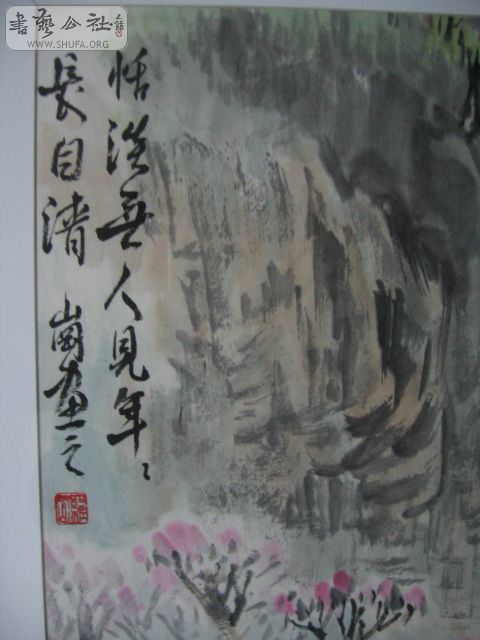 書藝公社
WWW.SHUFA.ORG
恬淡無人見年〻
長自清 崗画之